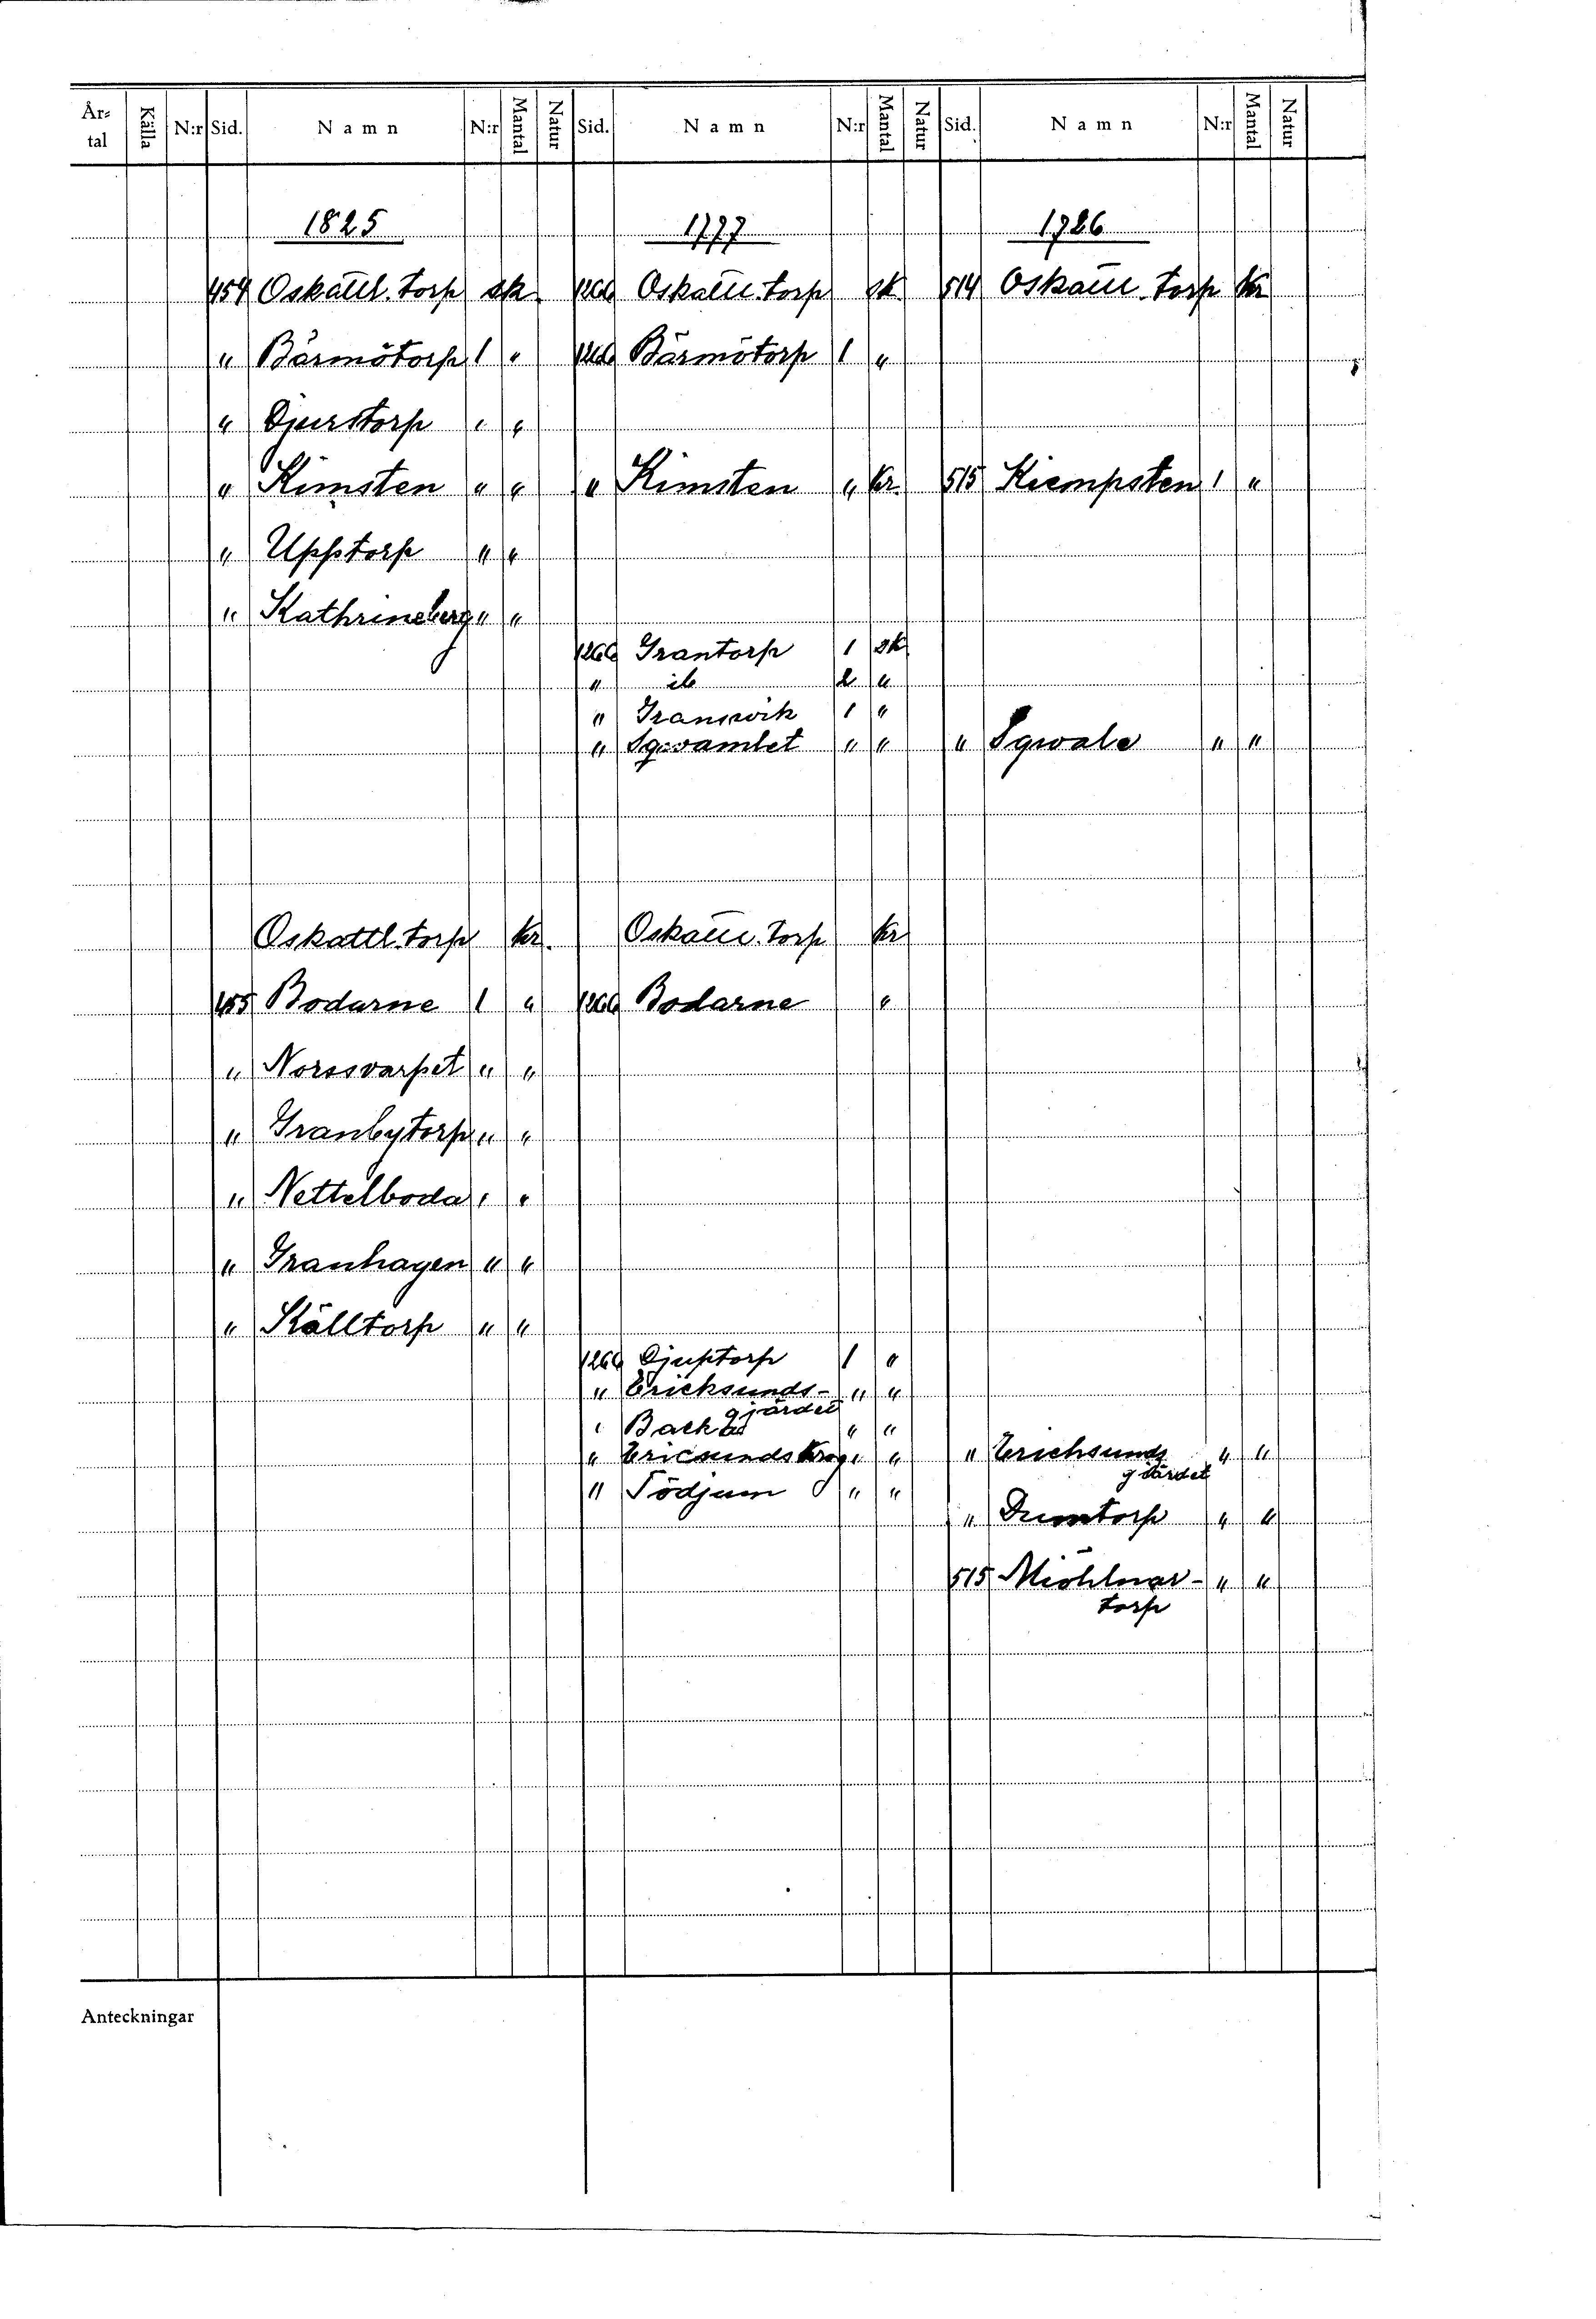 År-tal Källa N:r Sid. Namn N:r Mantal Natur Sid. Namn N:r Mantal Natur Sid. Namn N:r Mantal Natur
1825 1777 1726
454 Oskattl. torp sk. 1266 Oskattl. torp sk. 514 Oskattl. torp kr
" Bärmötorp 1 " 1266 Bärmötorp 1 "
" Djurstorp " "
" Kimsten " " " Kimsten " kr. 515 Kiempsten 1 "
" Upptorp " "
" Kathrineberg " "
1266 Grantorp 1 sk
" ib 2 "
" Granswik 1 "
" Sqvamlet " " " Sqwale " "
Oskattl. torp kr. Oskattl. torp kr
455 Bodarne 1 " 1266 Bodarne "
" Norssvarpet " "
" Granbytorp " "
" Nettelboda " "
" Granhagen " "
" Källtorp " "
1266 Djuptorp 1 "
" Ericksunds- " "
gjärdet
" Backa " "
" Ericsunds krog " " " Erichsunds " "
giärdet
" Tödjum " "
" Dumtorp " "
515 Miöhlnar- " "
torp
Anteckningar